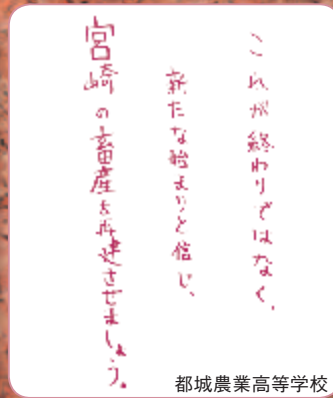 これが終わりではなく、
新たな始まりと信じ、
宮崎の畜産を再建させましょう。
都城農業高等学校